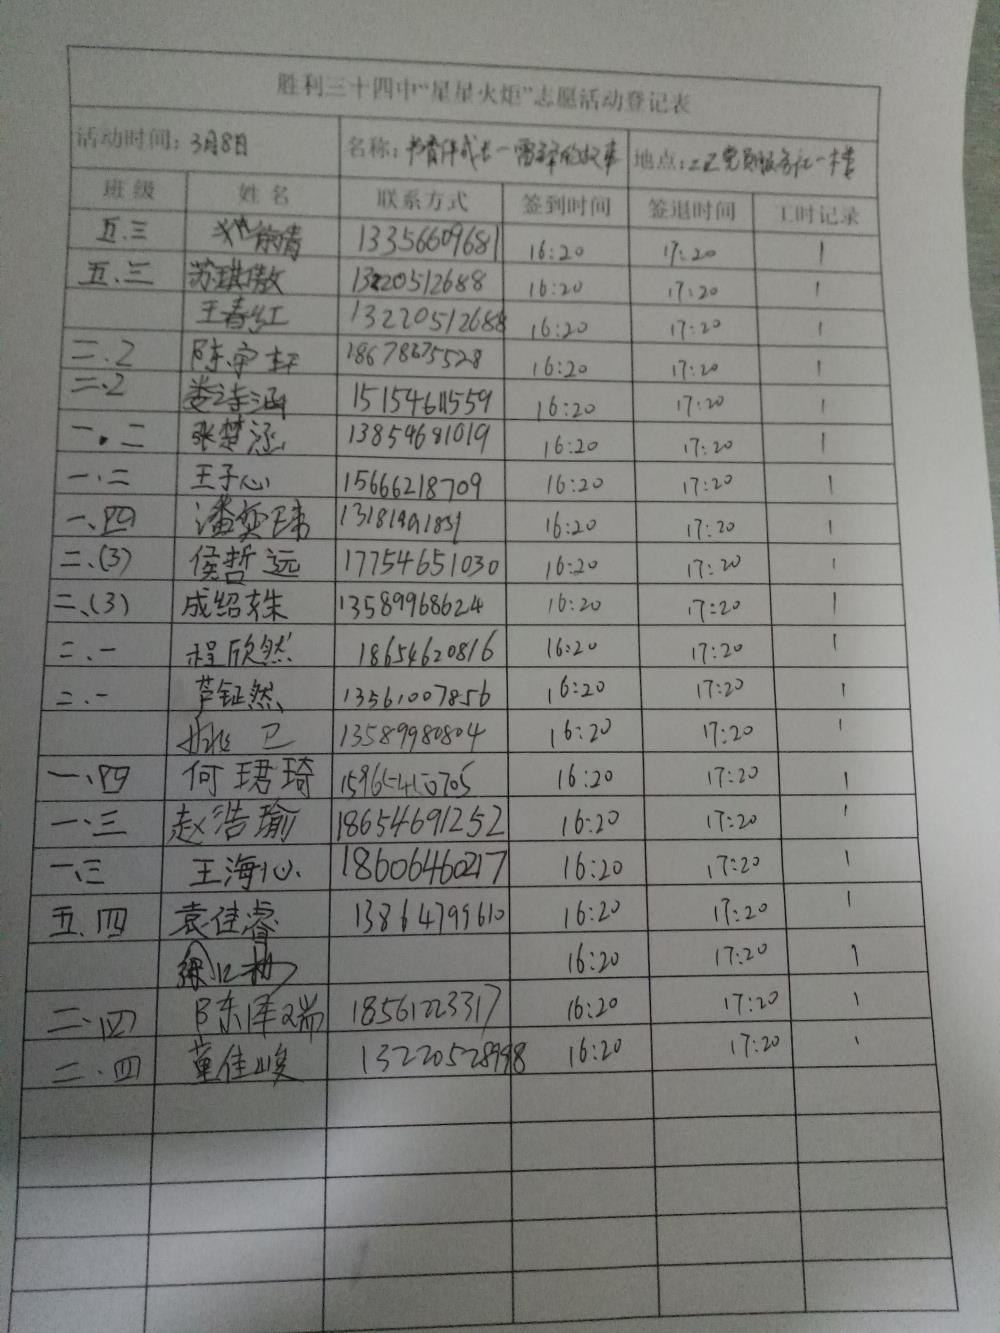 胜利三十四中“星星火炬”志愿活动登记表
活动时间：3月8日 名称：书香伴成长一雷锋的故事 地点：二区党员服务社一楼
班级 姓名 联系方式 签到时间 签退时间 工时记录
五.三 13356609681 16:20 17:20 1
五.三 苏琪傲 13220512688 16:20 17:20 1
王春红 13220512688 16:20 17:20 1
二.2 陈宇轩 18678675528 16:20 17:20 1
二.2 娄诗涵 15154611559 16:20 17:20 1
一.二 张楚涵 13854681019 16:20 17:20 1
一.二 王子心 15666218709 16:20 17:20 1
一.四 潘奕玮 13181991831 16:20 17:20 1
二.(3) 侯哲远 17754651030 16:20 17:20 1
二、(3) 成绍轶 13589968624 16:20 17:20 1
二.一 程欣然 18654620816 16:20 17:20 1
二.一 芦钲然 13561007856 16:20 17:20 1
姚 13589980804 16:20 17:20 1
一.四 何珺琦 16:20 17:20 1
一.三 赵浩瑜 18654691252 16:20 17:20 1
一.三 王海心 18606460217 16:20 17:20 1
五.四 袁佳睿 13864799610 16:20 17:20 1
16:20 17:20 1
二.四 陈泽瑞 18561223317 16:20 17:20 1
二.四 董佳峻 13220528998 16:20 17:20 1